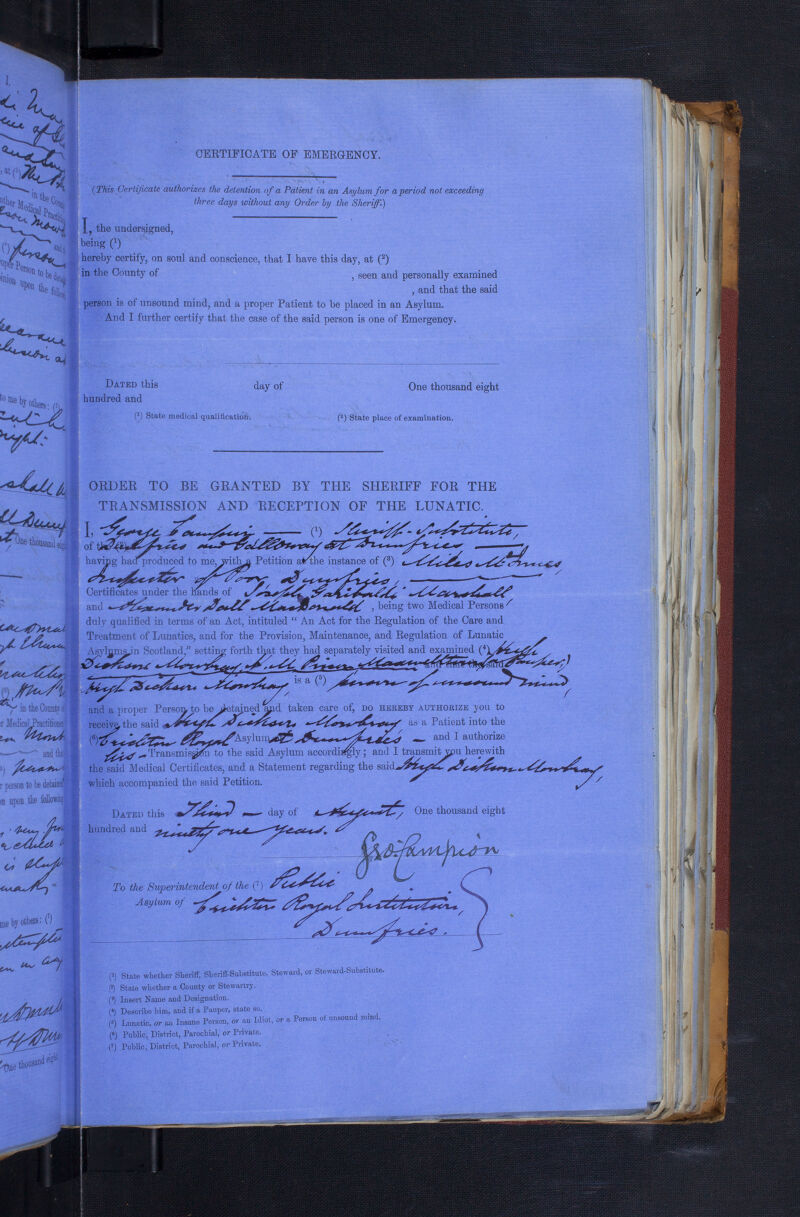 CERTIFICATE OF EMERGENCY.
(This Certificate authorizes the detention of a Patient in an Asylum for a period not exceeding
three days without any Order by the Sheriff.)
I, the undersigned,
being (¹)
hereby certify, on soul and conscience, that I have this day, at (²)
in the County of , seen and personally examined
, and that the said
person is of unsound mind, and a proper Patient to be placed in an Asylum.
And I further certify that the case of the said person is one of Emergency.
DATED this day of One thousand eight
hundred and
(¹) State medical qualification. (²) State place of examination.
ORDER TO BE GRANTED BY THE SHERIFF FOR THE
TRANSMISSION AND RECEPTION OF THE LUNATIC.
I, George Campion (¹) Sheriff-Substitute,
of the (²) Dumfries and Galloway at Dumfries
having had produced to me, with a Petition at the instance of (³) Miles McInnes,
Inspector of Poor, Dumfries,
Certificates under the hands of Joseph Garibaldi Marshall
and Alexander Dall MacDonald , being two Medical Persons
duly qualified in terms of an Act, intituled " An Act for the Regulation of the Care and
Treatment of Lunatics, and for the Provision, Maintenance, and Regulation of Lunatic
Asylums in Scotland," setting forth that they had separately visited and examined (⁴) Hugh
Dickson Mowbray, Maxwelltown (Pauper,) and that the said
Hugh Dickson Mowbray is a (⁵) person of unsound mind,
and a proper Person to be detained and taken care of, DO HEREBY AUTHORIZE you to
receive the said Hugh Dickson Mowbray as a Patient into the
(⁶) Crichton Royal Asylum at Dumfries and I authorize
his Transmission to the said Asylum accordingly; and I transmit you herewith
the said Medical Certificates, and a Statement regarding the said Hugh Dickson Mowbray,
which accompanied the said Petition.
DATED this Third day of August, One thousand eight
hundred and ninety one years.
Geo Campion
To the Superintendent of the (⁷) Public
Asylum of Crichton Royal Institution,
Dumfries.
(¹) State whether Sheriff, Sheriff-Substitute, Steward, or Steward-Substitute.
(²) State whether a County or Stewartry.
(³) Insert Name and Designation.
(⁴) Describe him, and if a Pauper, state so.
(⁵) Lunatic, or an Insane Person, or an Idiot, or a Person of unsound mind.
(⁶) Public, District, Parochial, or Private.
(⁷) Public, District, Parochial, or Private.